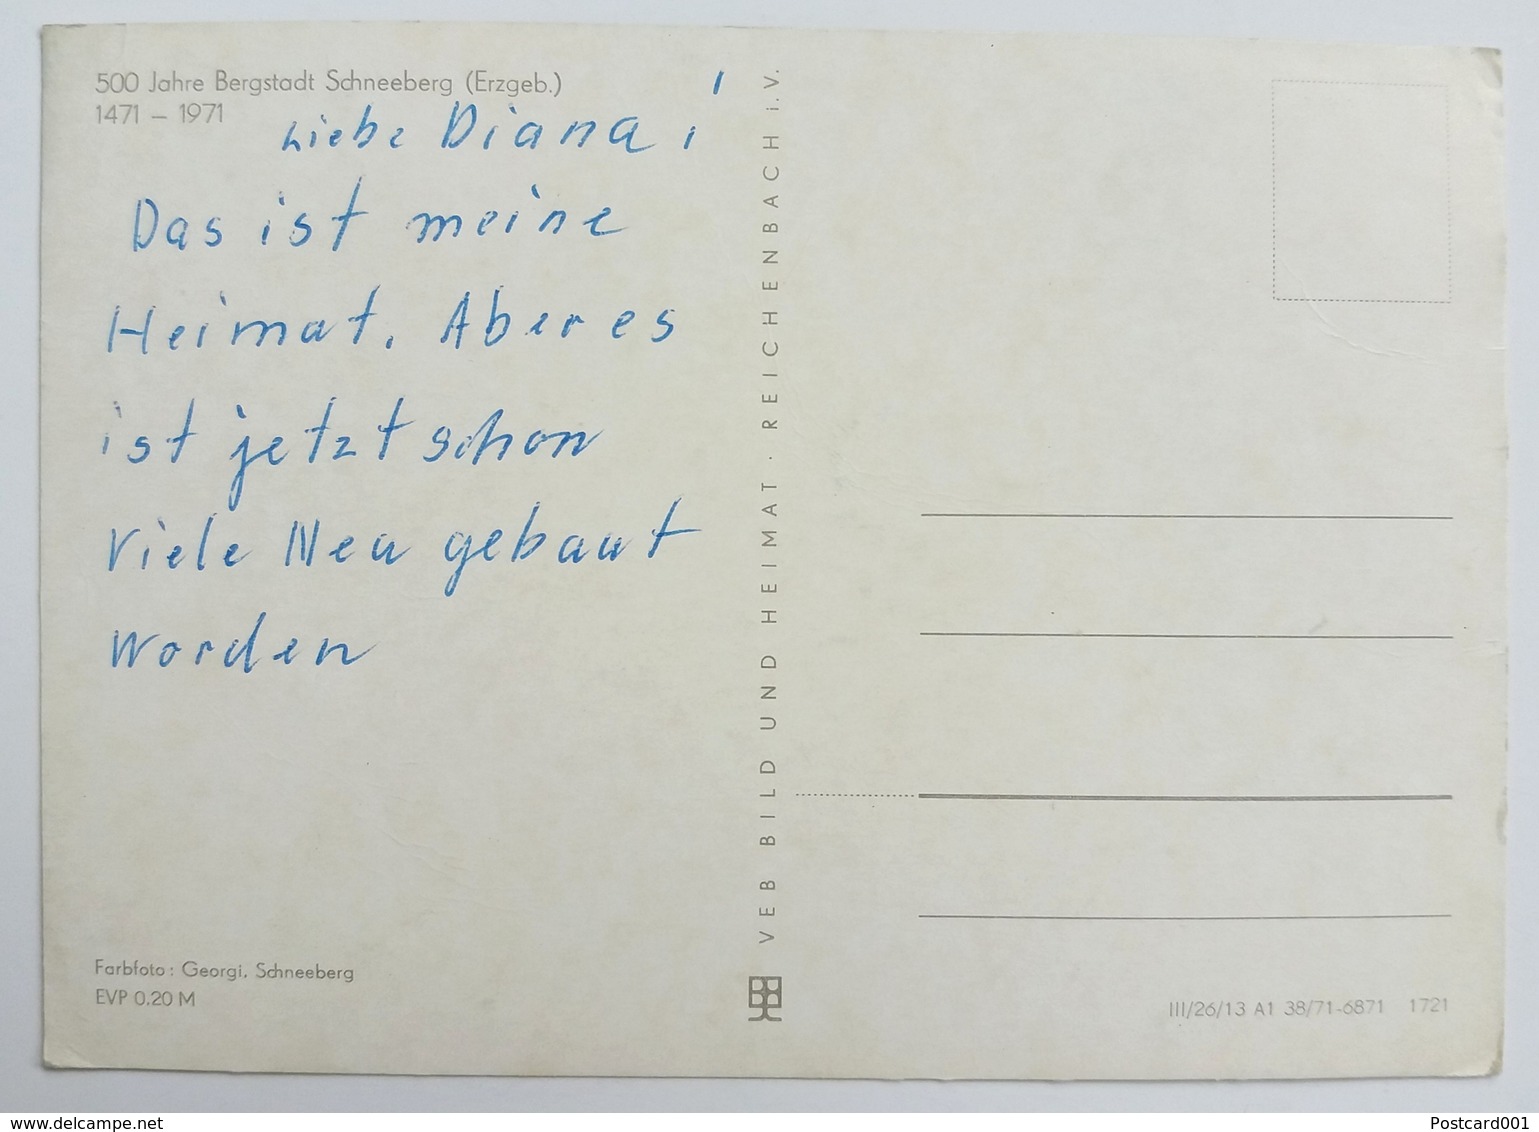 500 Jahre Bergstadt Schneeberg (Erzgeb.)
1471 – 1971
Liebe Diana,
Das ist meine
Heimat. Aber es
ist jetzt schon
viele Neu gebaut
worden
Farbfoto: Georgi, Schneeberg
EVP 0.20 M
VEB BILD UND HEIMAT · REICHENBACH i. V.
III/26/13 A1 38/71-6871 1721
www.delcampe.net
Postcard001